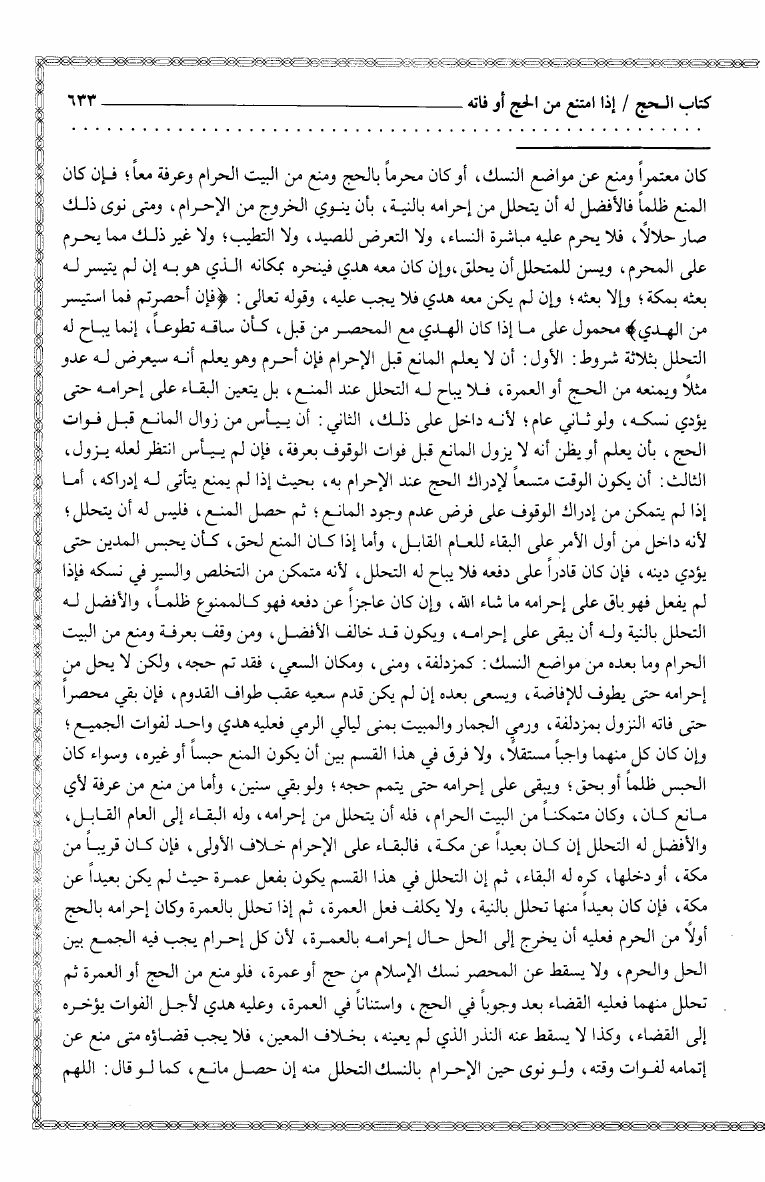 كتاب الحج / إذا امتنع من الحج أو فاته ٦٣٣
كان معتمراً ومنع عن مواضع النسك، أو كان محرماً بالحج ومنع من البيت الحرام وعرفة معاً؛ فإن كان
المنع ظلماً فالأفضل له أن يتحلل من إحرامه بالنية، بأن ينوي الخروج من الإحرام، ومتى نوى ذلك
صار حلالاً، فلا يحرم عليه مباشرة النساء، ولا التعرض للصيد، ولا التطيب؛ ولا غير ذلك مما يحرم
على المحرم، ويسن للمتحلل أن يحلق،وإن كان معه هدي فينحره بمكانه الذي هو به إن لم يتيسر له
بعثه بمكة؛ وإلا بعثه؛ وإن لم يكن معه هدي فلا يجب عليه، وقوله تعالى: ﴿فإن أحصرتم فما استيسر
من الهدي﴾ محمول على ما إذا كان الهدي مع المحصر من قبل، كأن ساقه تطوعاً، إنما يباح له
التحلل بثلاثة شروط: الأول: أن لا يعلم المانع قبل الإحرام فإن أحرم وهو يعلم أنه سيعرض له عدو
مثلاً ويمنعه من الحج أو العمرة، فلا يباح له التحلل عند المنع، بل يتعين البقاء على إحرامه حتى
يؤدي نسكه، ولو ثاني عام؛ لأنه داخل على ذلك، الثاني: أن ييأس من زوال المانع قبل فوات
الحج، بأن يعلم أو يظن أنه لا يزول المانع قبل فوات الوقوف بعرفة، فإن لم ييأس انتظر لعله يزول،
الثالث: أن يكون الوقت متسعاً لإدراك الحج عند الإحرام به، بحيث إذا لم يمنع يتأتى له إدراكه، أما
إذا لم يتمكن من إدراك الوقوف على فرض عدم وجود المانع؛ ثم حصل المنع، فليس له أن يتحلل؛
لأنه داخل من أول الأمر على البقاء للعام القابل، وأما إذا كان المنع لحق، كأن يحبس المدين حتى
يؤدي دينه، فإن كان قادراً على دفعه فلا يباح له التحلل، لأنه متمكن من التخلص والسير في نسكه فإذا
لم يفعل فهو باق على إحرامه ما شاء الله، وإن كان عاجزاً عن دفعه فهو كالممنوع ظلماً، والأفضل له
التحلل بالنية وله أن يبقى على إحرامه، ويكون قد خالف الأفضل، ومن وقف بعرفة ومنع من البيت
الحرام وما بعده من مواضع النسك: كمزدلفة، ومنى، ومكان السعي، فقد تم حجه، ولكن لا يحل من
إحرامه حتى يطوف للإفاضة، ويسعى بعده إن لم يكن قدم سعيه عقب طواف القدوم، فإن بقي محصراً
حتى فاته النزول بمزدلفة، ورمي الجمار والمبيت بمنى ليالي الرمي فعليه هدي واحد لفوات الجميع؛
وإن كان كل منهما واجباً مستقلاً، ولا فرق في هذا القسم بين أن يكون المنع حبساً أو غيره، وسواء كان
الحبس ظلماً أو بحق؛ ويبقى على إحرامه حتى يتمم حجه؛ ولو بقي سنين، وأما من منع من عرفة لأي
مانع كان، وكان متمكناً من البيت الحرام، فله أن يتحلل من إحرامه، وله البقاء إلى العام القابل،
والأفضل له التحلل إن كان بعيداً عن مكة، فالبقاء على الإحرام خلاف الأولى، فإن كان قريباً من
مكة، أو دخلها، كره له البقاء، ثم إن التحلل في هذا القسم يكون بفعل عمرة حيث لم يكن بعيداً عن
مكة، فإن كان بعيداً منها تحلل بالنية، ولا يكلف فعل العمرة، ثم إذا تحلل بالعمرة وكان إحرامه بالحج
أولاً من الحرم فعليه أن يخرج إلى الحل حال إحرامه بالعمرة، لأن كل إحرام يجب فيه الجمع بين
الحل والحرم، ولا يسقط عن المحصر نسك الإسلام من حج أو عمرة، فلو منع من الحج أو العمرة ثم
تحلل منهما فعليه القضاء بعد وجوباً في الحج، واستناناً في العمرة، وعليه هدي لأجل الفوات يؤخره
إلى القضاء، وكذا لا يسقط عنه النذر الذي لم يعينه، بخلاف المعين، فلا يجب قضاؤه متى منع عن
إتمامه لفوات وقته، ولو نوى حين الإحرام بالنسك التحلل منه إن حصل مانع، كما لو قال: اللهم